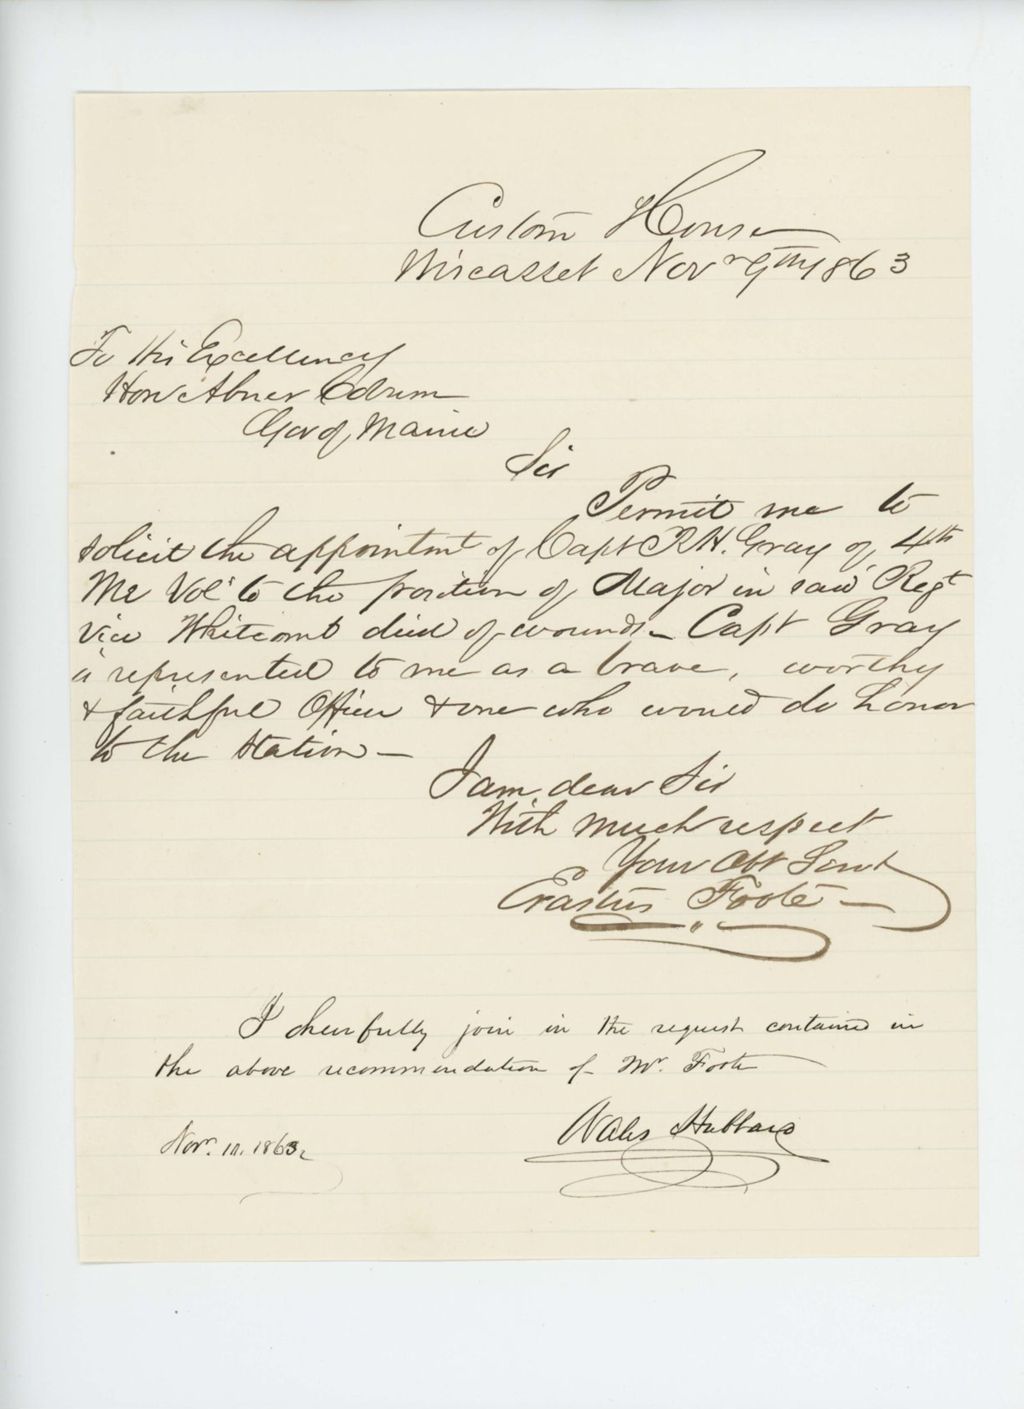 Custom House
Wiscasset Novr 9th 1863
To His Excellency
Hon Abner Coburn
Gov of Maine
Sir
Permit me to
solicit the appointmt of Capt R H. Gray of 4th
Me Vols to the position of Major in said Regt
vice Whitcomb died of wounds - Capt Gray
is represented to me as a brave, worthy
& faithful Officer & one who would do honor
to the station -
I am, dear Sir
With much respect
Your Obt Servt
Erastus Foote -
I cheerfully join in the request contained in
the above recommendation of Mr. Foote
Wales Hubbard
Novr. 10. 1863.